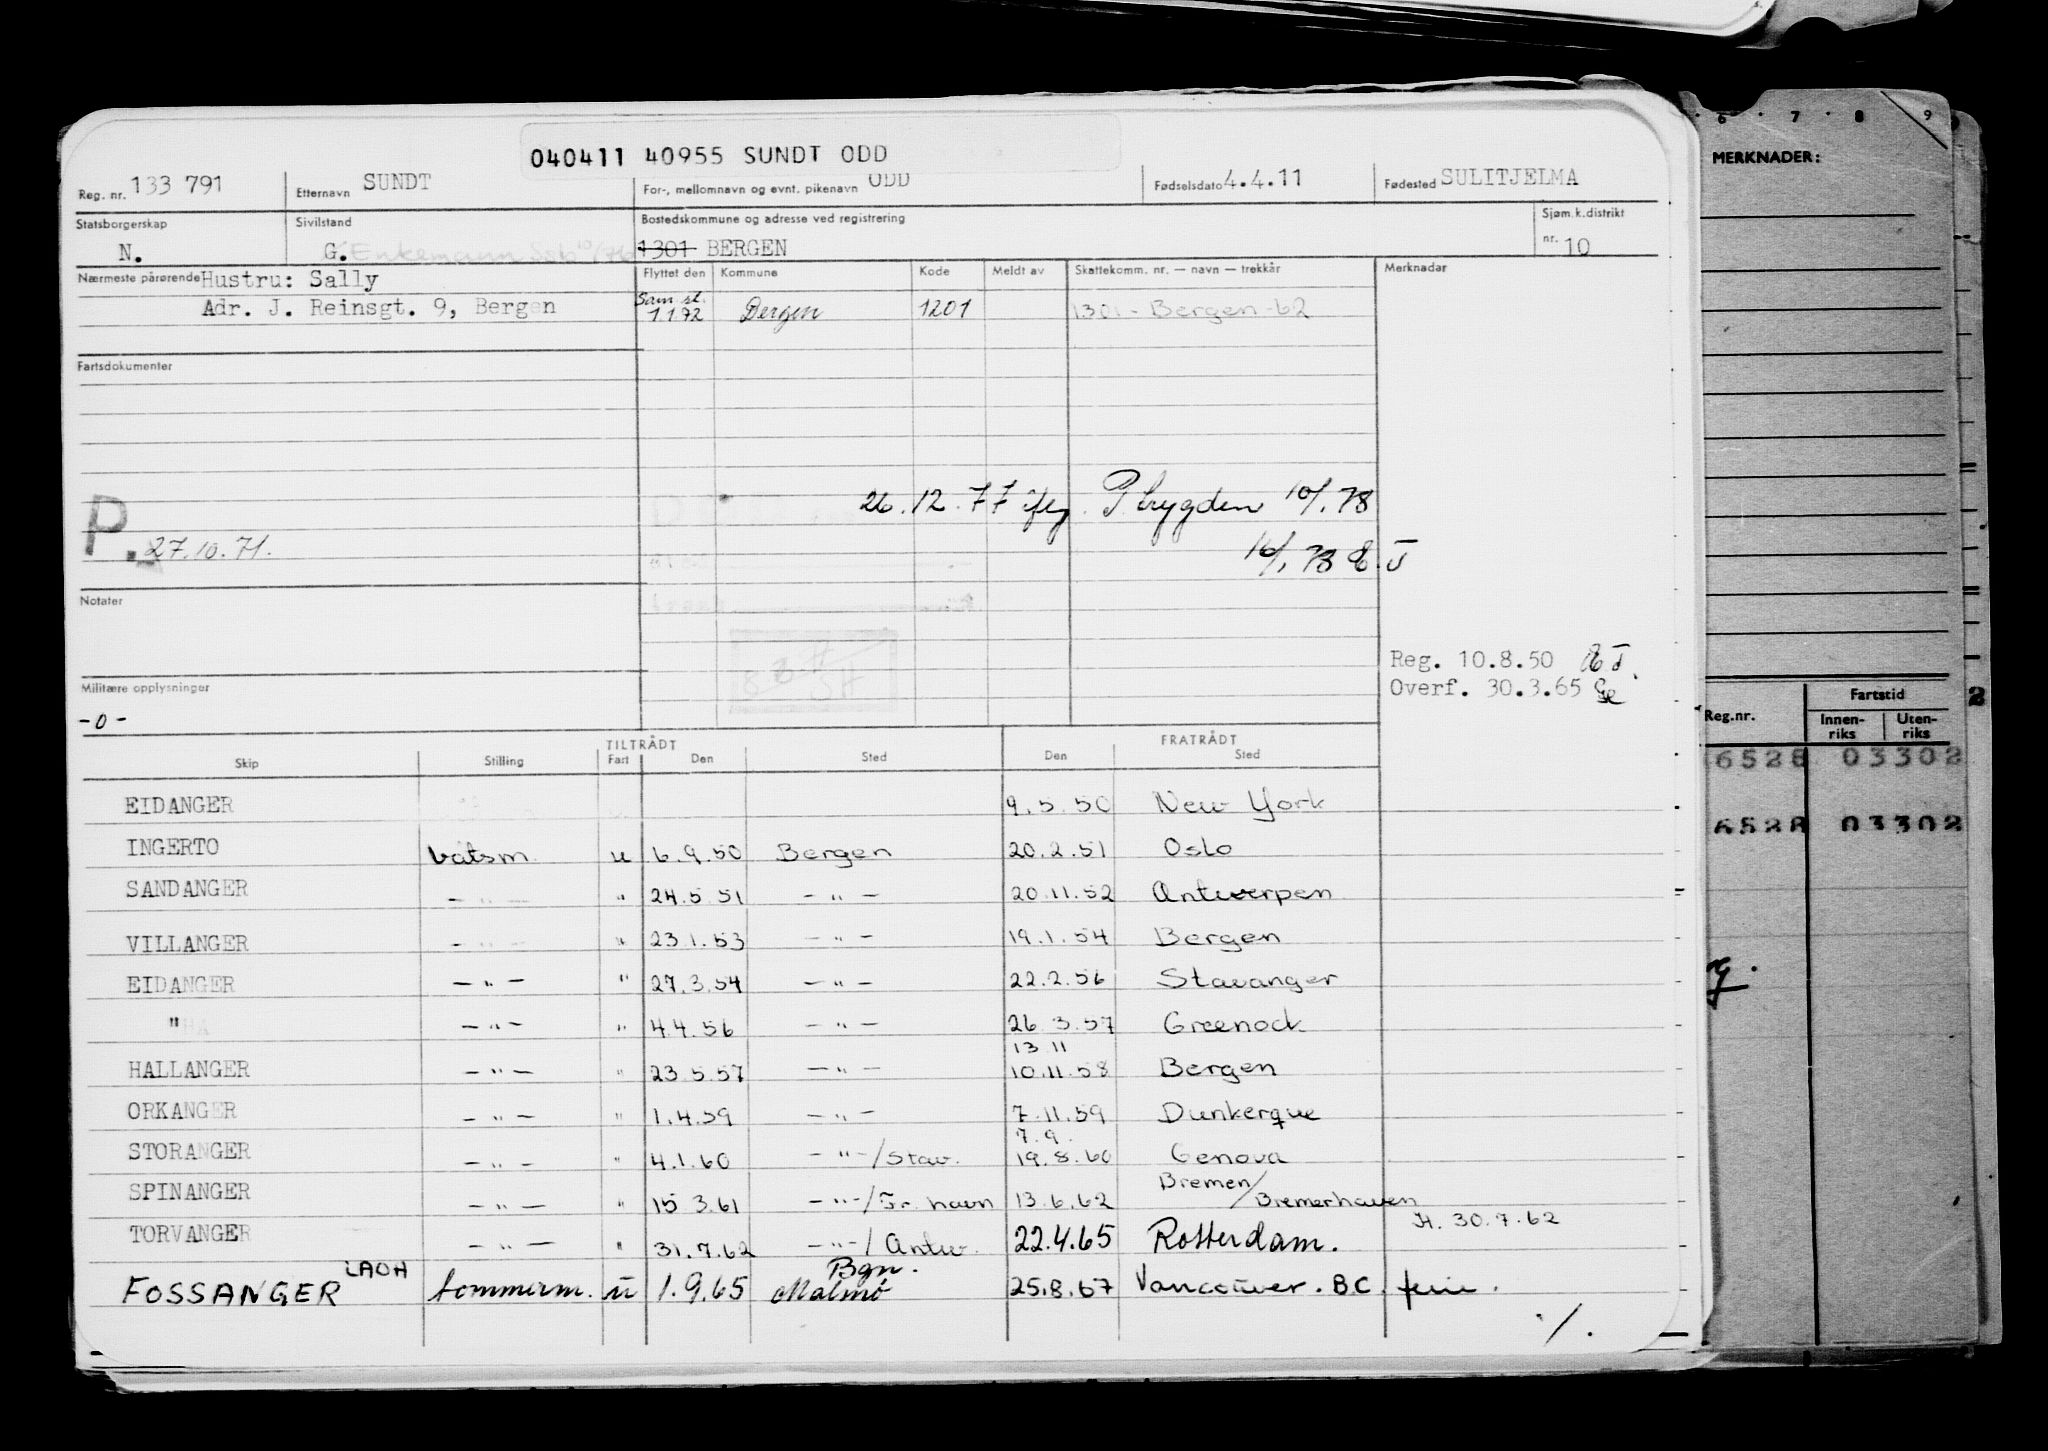 040411 40955 SUNDT ODD
Reg. nr. 133 791 Etternavn SUNDT For-, mellomnavn og evnt. pikenavn ODD Fødselsdato 4.4.11 Fødested SULITJELMA
Statsborgerskap Sivilstand Bostedskommune og adresse ved registrering Sjøm.k.distrikt
N. G. Enkemann 1301 BERGEN nr. 10
Nærmeste pårørende Hustru: Sally Flyttet den Kommune Kode Meldt av Skattekomm. nr. — navn — trekkår Merknader
Adr. J. Reinsgt. 9, Bergen Sam.st. 1.1.72 Bergen 1201 1301 - Bergen - 62
Fartsdokumenter
26.12.77 P trygden 10/1.78
P. 27.10.71.
16/1.78
Notater
Reg. 10.8.50
Militære opplysninger Overf. 30.3.65
-0-
TILTRÅDT FRATRÅDT
Skip Stilling Fart Den Sted Den Sted
EIDANGER 9.5.50 New York
INGERTO båtsm. u 6.9.50 Bergen 20.2.51 Oslo
SANDANGER — " — " 24.5.51 — " — 20.11.52 Antwerpen
VILLANGER — " — " 23.1.53 — " — 19.1.54 Bergen
EIDANGER — " — " 27.3.54 — " — 22.2.56 Stavanger
" — " — " 4.4.56 — " — 26.3.57 Greenock
13.11
HALLANGER — " — " 23.5.57 — " — 10.11.58 Bergen
ORKANGER — " — " 1.4.59 — " — 7.11.59 Dunkerque
7.9.
STORANGER — " — " 4.1.60 — " — / Stav. 19.8.60 Genova
SPINANGER — " — " 15.3.61 — " — / Fr. havn 13.6.62 Bremen / Bremerhaven
H. 30.7.62
TORVANGER — " — " 31.7.62 — " — / Antw. 22.4.65 Rotterdam.
FOSSANGER LAOH tømmerm. u 1.9.65 Bgn. Malmö 25.8.67 Vancouver. B.C. ferie.
./.
6 7 8 9
MERKNADER:
Reg.nr. Fartstid
Innenriks Utenriks
2
6528 03302
6528 03302